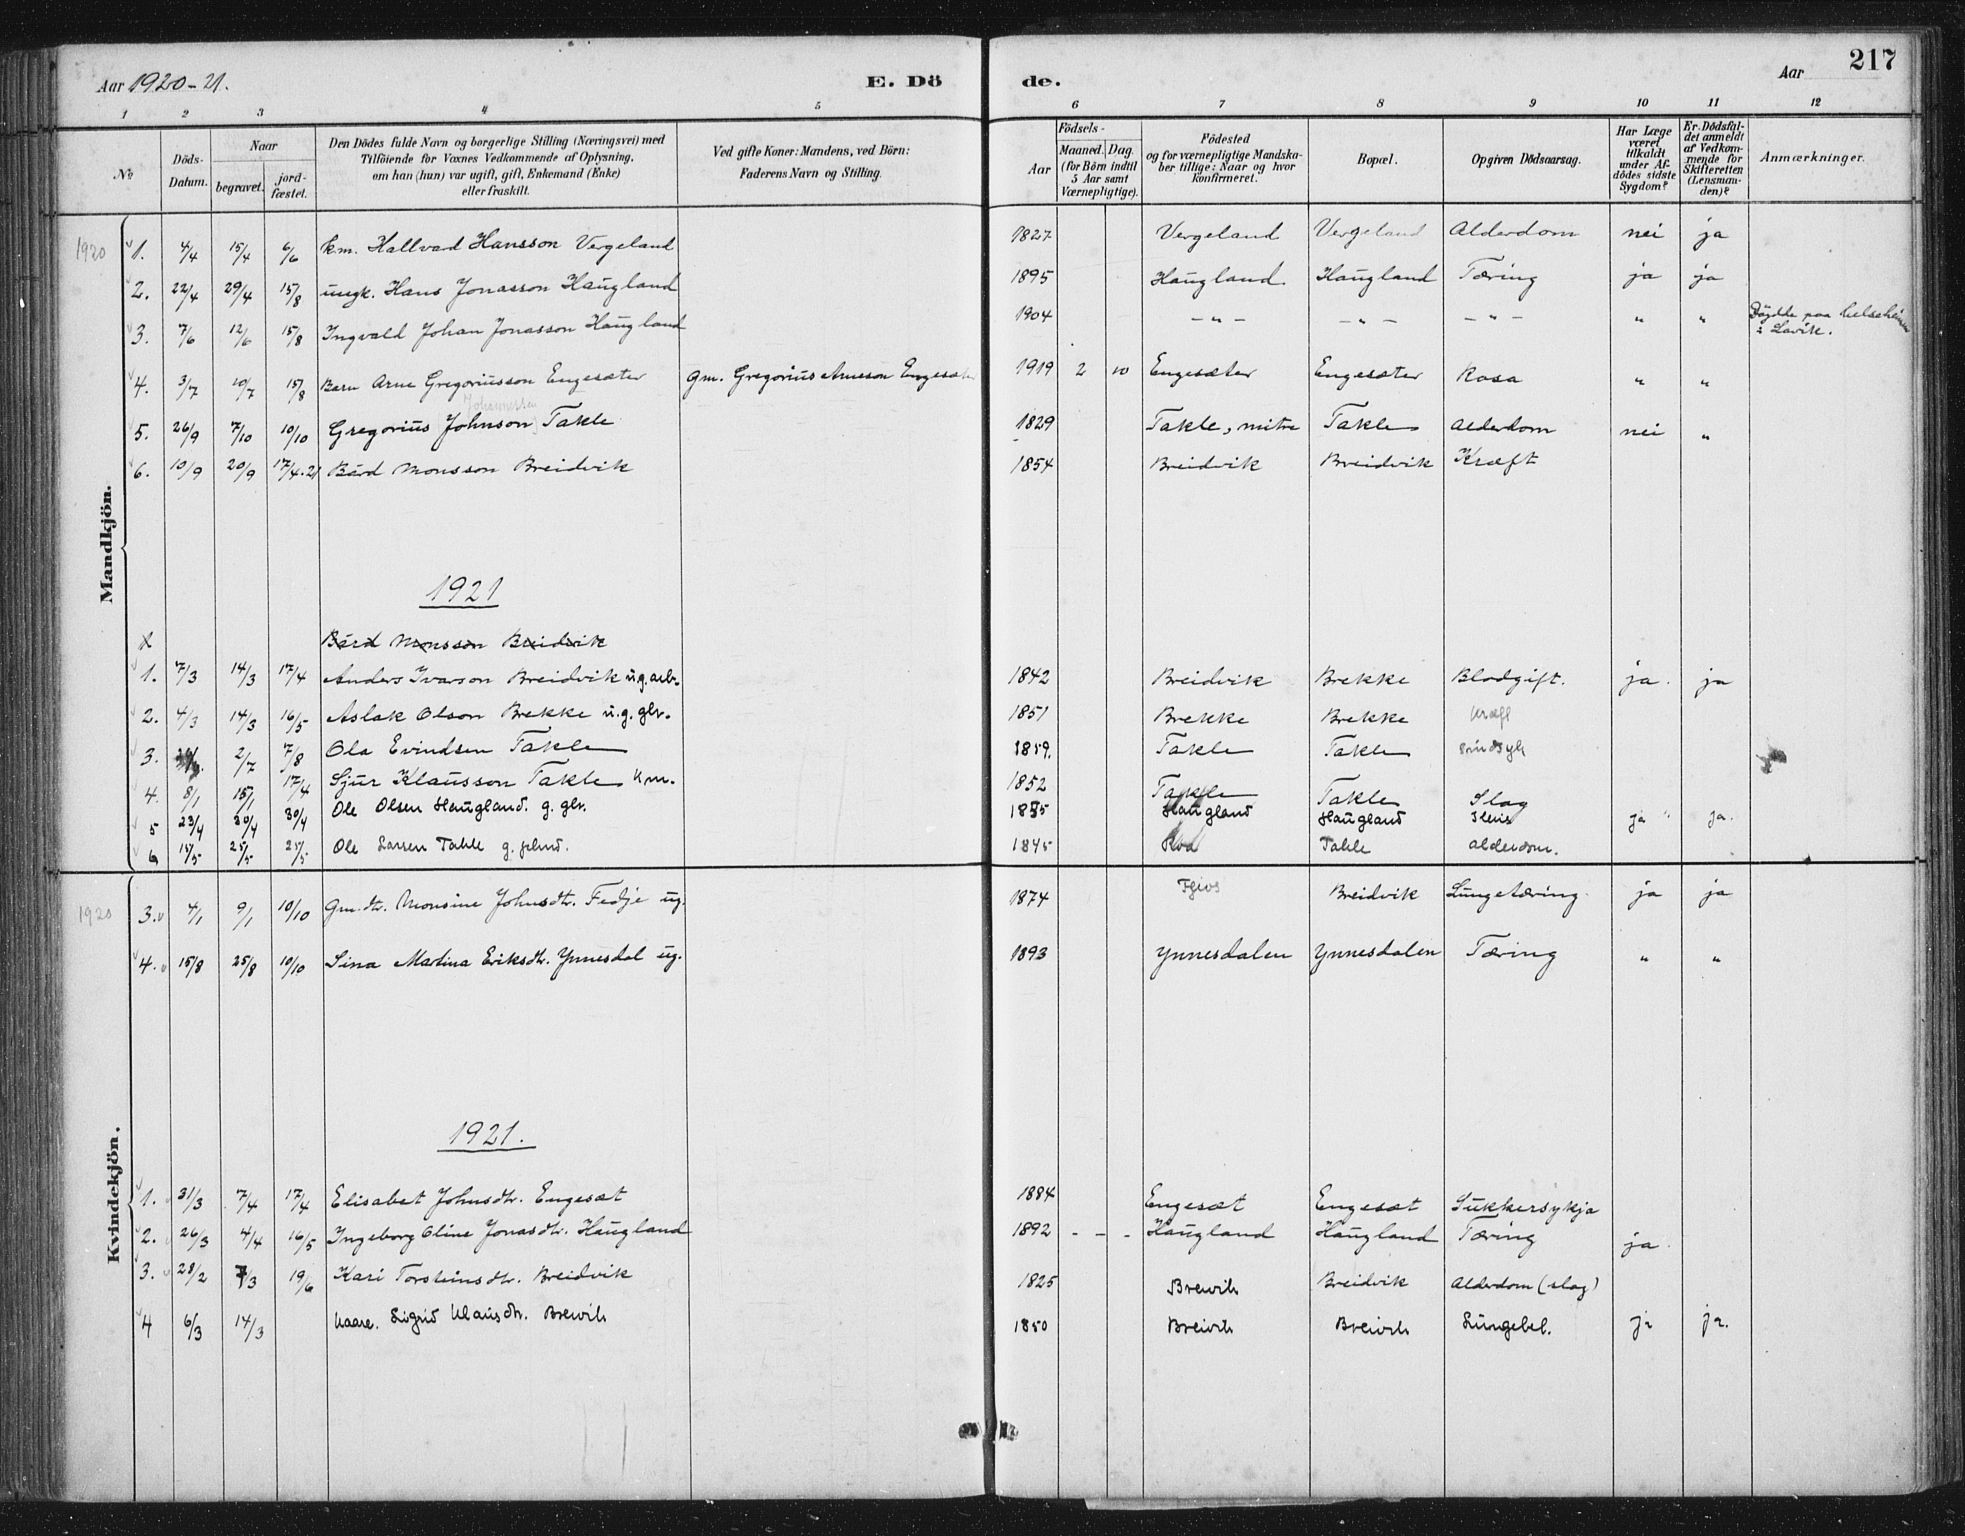 Aar 1920-21. E. Dö de. Aar 217
1 2 3 4 5 6 7 8 9 10 11 12
No
Döds-Datum.
Naar
begravet.
jord-fæstet.
Den Dödes fulde Navn og borgerlige Stilling (Næringsvei) med
Tilföiende for Voxnes Vedkommende af Oplysning,
om han (hun) var ugift, gift, Enkemand (Enke)
eller fraskilt.
Ved gifte Koner: Mandens, ved Börn:
Faderens Navn og Stilling.
Födsels-
Aar
Maaned. Dag.
(for Börn indtil
5 Aar samt
Værnepligtige).
Födested
og for værnepligtige Mandska-
ber tillige: Naar og hvor
konfirmeret.
Bopæl.
Opgiven Dödsaarsag.
Har Læge
været
tilkaldt
under Af-
dödes sidste
Sygdom?
Er Dödsfal-
det anmeldt
af Vedkom-
mende for
Skifteretten
(Lensman-
den)?
Anmærkninger.
Mandkjön.
1920 1. 4/4 15/4 6/6 km. Hallvard Hansson Vergeland 1827 Vergeland Vergeland Alderdom nei ja
2. 22/4 29/4 15/8 ungk. Hans Jonasson Haugland 1895 Haugland Haugland Tæring ja ja
3. 7/6 12/6 15/8 Ingvald Johan Jonasson Haugland 1904 - " - - " - - " - " " Döydde paa helseheimen
i Lavik.
4. 3/7 10/7 15/8 Barn Arne Gregoriusson Engesæter gm. Gregorius Arneson Engesæter 1919 2 10 Engesæter Engesæter Rosa " "
Johannessen
5. 26/9 7/10 10/10 Gregorius Johnson Takle 1829 Takle, mitre Takle Alderdom nei "
6. 10/9 20/9 17/4.21 Bård Monsson Breidvik 1854 Breidvik Breidvik Kræft
1921
Bård Monsson Breidvik
1. 7/3 14/3 17/4 Anders Ivarson Breidvik u.g. arb. 1842 Breidvik Brekke Blodgift. ja. ja
2. 4/3 14/3 16/5 Aslak Olson Brekke u.g. glr. 1851 Brekke Brekke Kræft
3. 2/7 7/8 Ola Evindsen Takle 1859. Takle Takle
4. 8/1 15/1 17/4 Sjur Klausson Takle km. 1852 Takle Takle Slag
5 23/4 30/4 30/4 Ole Olsen Haugland. g. glr. Haugland Haugland ja " ja.
6 15/5 25/5 25/5 Ole Larsen Takle g. 1845 Takle alderdom.
Kvindekjön.
1920 3. 4/1 9/1 10/10 Gm. dtr. Monsine Johnsdtr. Fedje ug. 1874 Breidvik Lungetæring. ja ja
4. 15/8 25/8 10/10 Sina Martina Eriksdtr. Ynnesdal ug. 1893 Ynnesdalen Ynnesdalen Tæring " "
1921.
1. 31/3 7/4 17/4 Elisabet Johnsdtr. Engesæt 1884 Engesæt Engesæt Sukkersykja
2. 26/3 4/4 16/5 Ingeborg Oline Jonasdtr. Haugland 1892 - - - Haugland Haugland Tæring ja.
3. 28/2 7/3 19/6 Kari Torsteinsdtr. Breidvik 1825 Breivik Breidvik Alderdom (slag)
4 6/3 14/3 Kaare. Sigrid Klausdtr. Breivik 1850 Breivik Breivik Lungebet. ja ja.